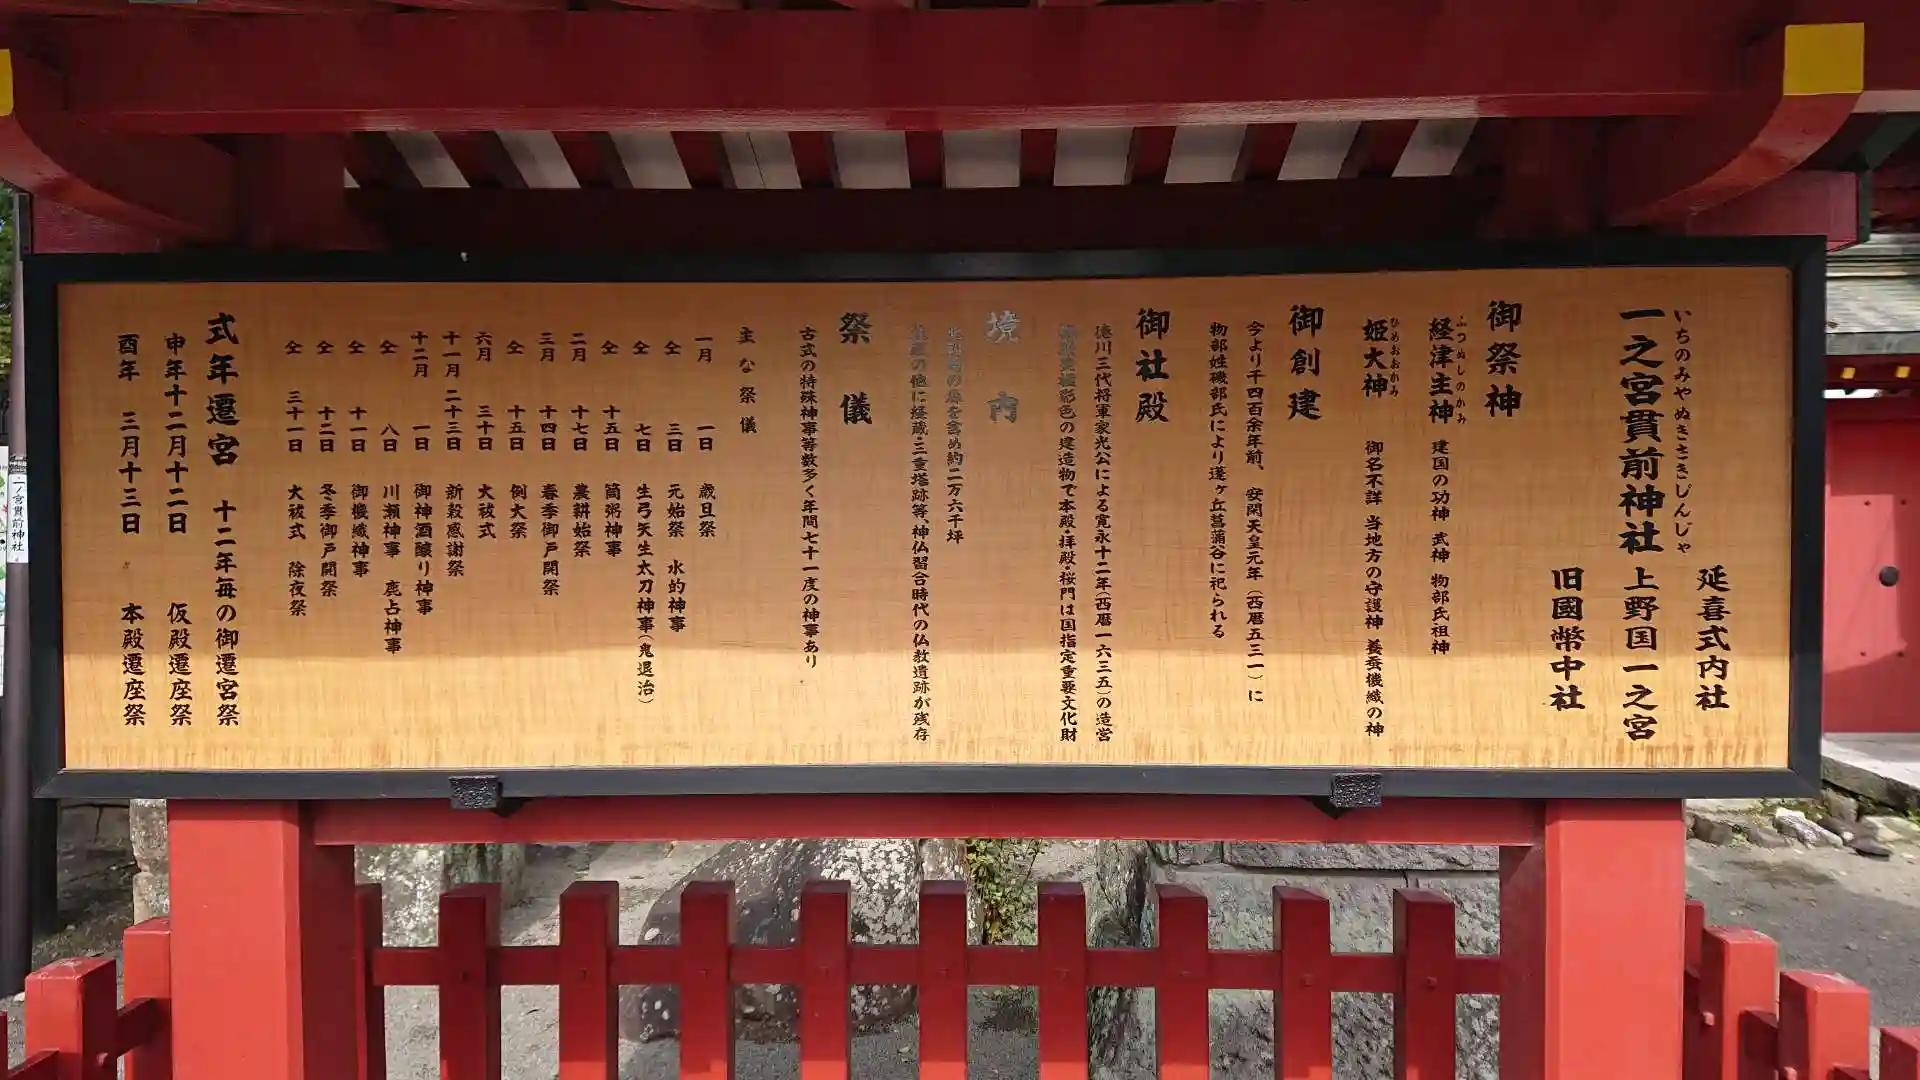 いちのみやぬきさきじんじゃ
一之宮貫前神社
延喜式内社
上野国一之宮
旧國幣中社
御祭神
ふつぬしのかみ
経津主神 建国の功神 武神 物部氏祖神
ひめおおかみ
姫大神 御名不詳 当地方の守護神 養蚕機織の神
御創建
今より千四百余年前、安閑天皇元年(西暦五三一)に
物部姓磯部氏により蓬ヶ丘菖蒲谷に祀られる
御社殿
徳川三代将軍家光公による寛永十二年(西暦一六三五)の造営
極彩色の建造物で本殿・拝殿・桜門は国指定重要文化財
境内
の森を含め約二万六千坪
の他に経蔵・三重塔跡等、神仏習合時代の仏教遺跡が残存
祭儀
古式の特殊神事等数多く年間七十一度の神事あり
主な祭儀
一月 一日 歳旦祭
仝 三日 元始祭 水的神事
仝 七日 生弓矢生太刀神事(鬼退治)
仝 十五日 筒粥神事
二月 十七日 農耕始祭
三月 十四日 春季御戸開祭
仝 十五日 例大祭
六月 三十日 大祓式
十一月 二十三日 新穀感謝祭
十二月 一日 御神酒醸り神事
仝 八日 川瀬神事 鹿占神事
仝 十一日 御機織神事
仝 十二日 冬季御戸開祭
仝 三十一日 大祓式 除夜祭
式年遷宮 十二年毎の御遷宮祭
申年十二月十二日 仮殿遷座祭
酉年 三月十三日 本殿遷座祭
一ノ宮貫前神社